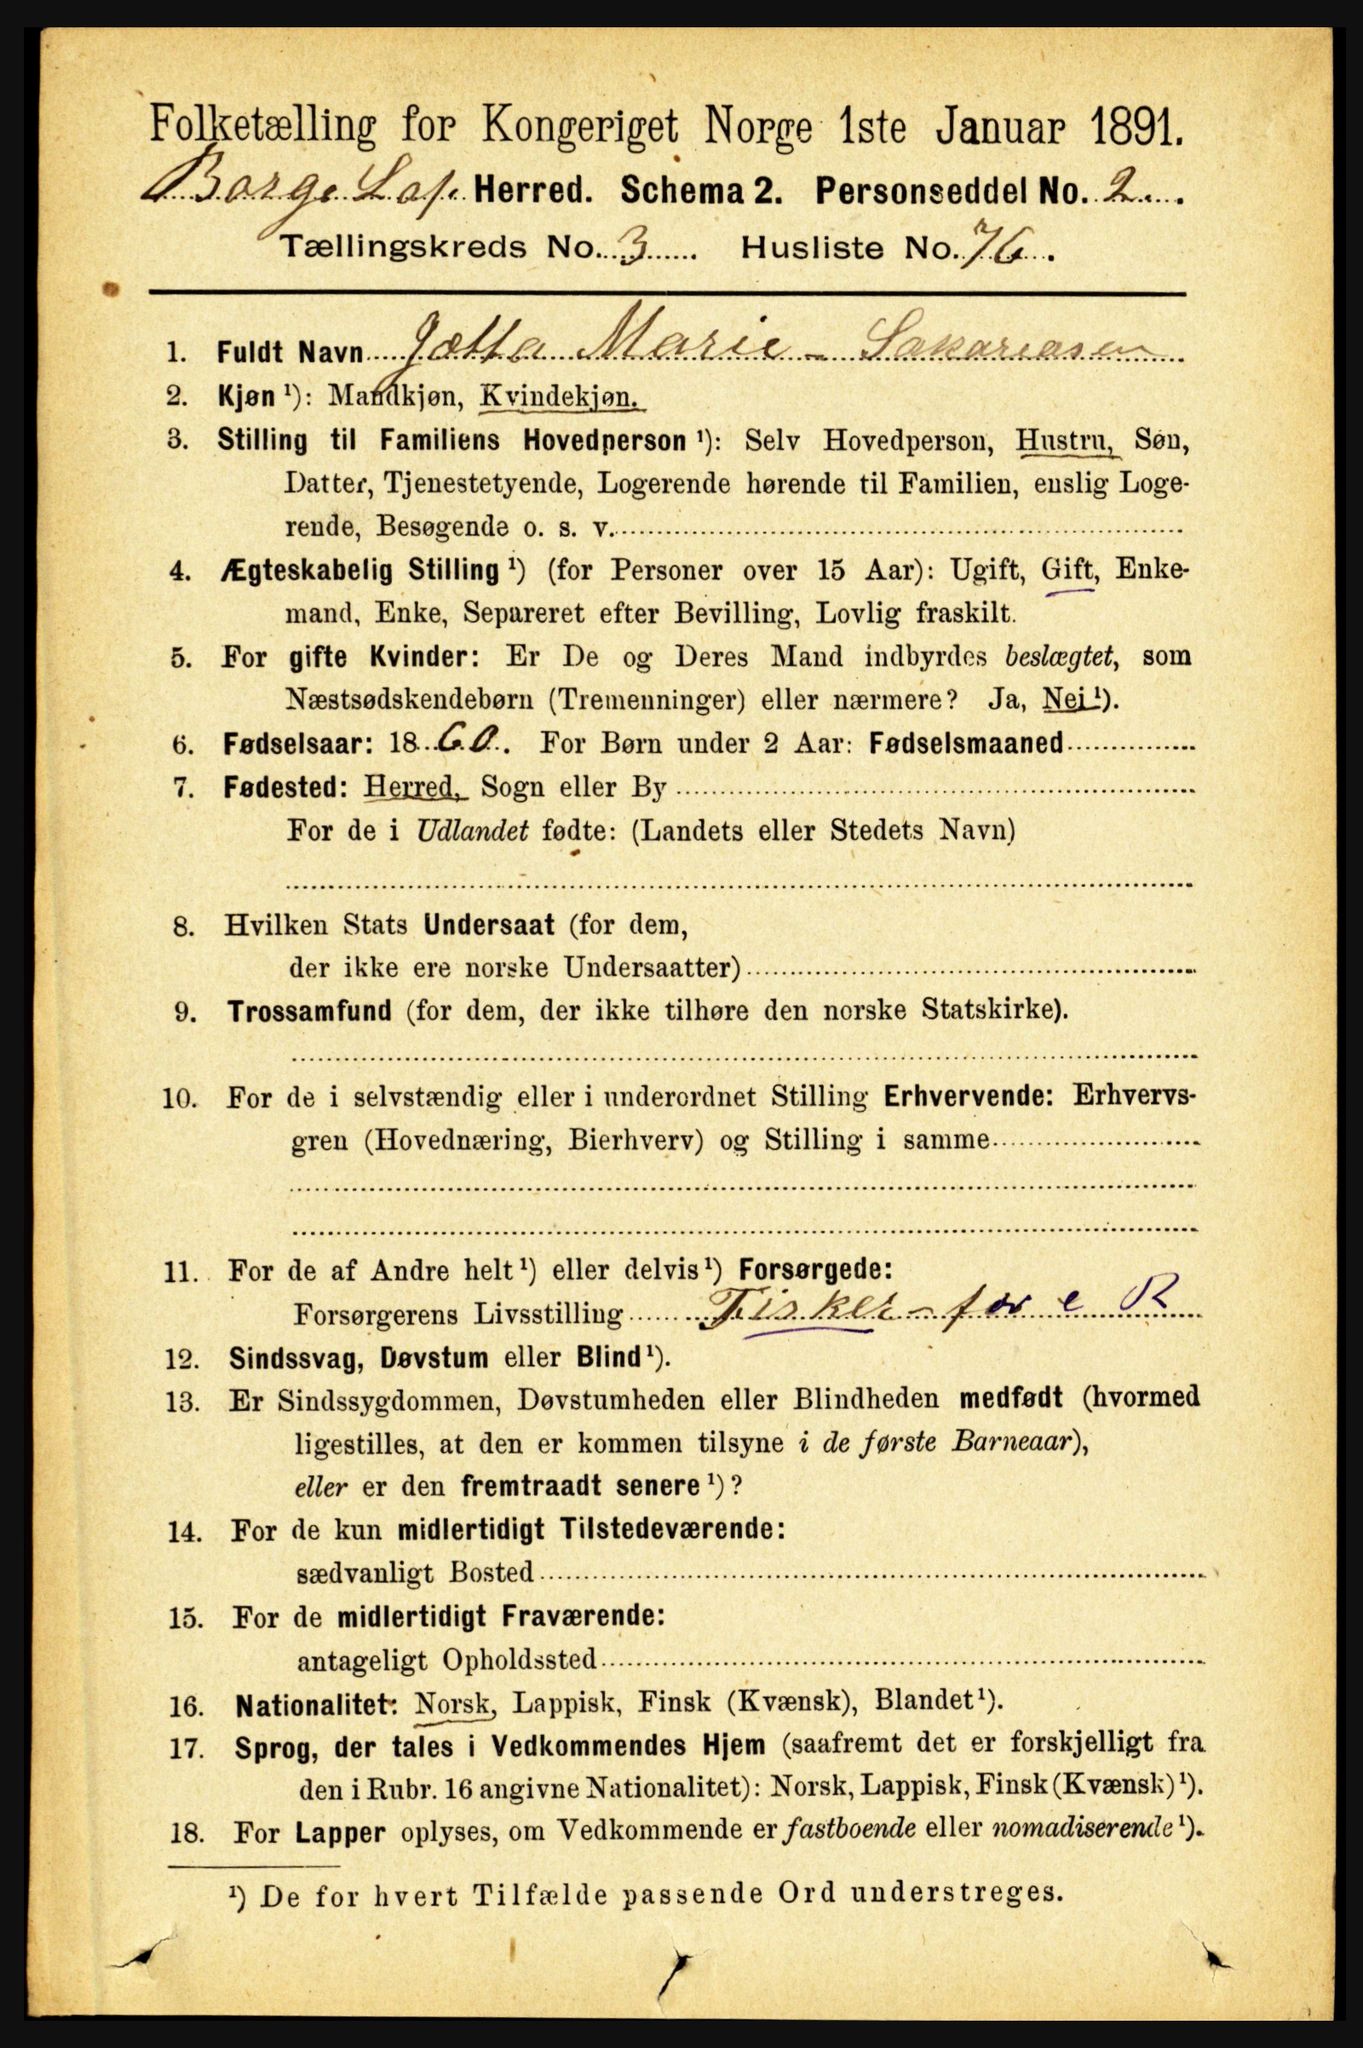 Folketælling for Kongeriget Norge 1ste Januar 1891.
Borge Lof. Herred. Schema 2. Personseddel No. 2.
Tællingskreds No. 3 Husliste No. 76.
1. Fuldt Navn Jætta Marie - Sakariasen
2. Kjøn ¹): Mandkjøn, Kvindekjøn.
3. Stilling til Familiens Hovedperson ¹): Selv Hovedperson, Hustru, Søn,
Datter, Tjenestetyende, Logerende hørende til Familien, enslig Loge-
rende, Besøgende o. s. v.
4. Ægteskabelig Stilling ¹) (for Personer over 15 Aar): Ugift, Gift, Enke-
mand, Enke, Separeret efter Bevilling, Lovlig fraskilt.
5. For gifte Kvinder: Er De og Deres Mand indbyrdes beslægtet, som
Næstsødskendebørn (Tremenninger) eller nærmere? Ja, Nei ¹).
6. Fødselsaar: 1860. For Børn under 2 Aar: Fødselsmaaned
7. Fødested: Herred, Sogn eller By
For de i Udlandet fødte: (Landets eller Stedets Navn)
8. Hvilken Stats Undersaat (for dem,
der ikke ere norske Undersaatter)
9. Trossamfund (for dem, der ikke tilhøre den norske Statskirke).
10. For de i selvstændig eller i underordnet Stilling Erhvervende: Erhvervs-
gren (Hovednæring, Bierhverv) og Stilling i samme
11. For de af Andre helt ¹) eller delvis ¹) Forsørgede:
Forsørgerens Livsstilling Fisker - for e R
12. Sindssvag, Døvstum eller Blind ¹).
13. Er Sindssygdommen, Døvstumheden eller Blindheden medfødt (hvormed
ligestilles, at den er kommen tilsyne i de første Barneaar),
eller er den fremtraadt senere ¹)?
14. For de kun midlertidigt Tilstedeværende:
sædvanligt Bosted
15. For de midlertidigt Fraværende:
antageligt Opholdssted
16. Nationalitet: Norsk, Lappisk, Finsk (Kvænsk), Blandet ¹).
17. Sprog, der tales i Vedkommendes Hjem (saafremt det er forskjelligt fra
den i Rubr. 16 angivne Nationalitet): Norsk, Lappisk, Finsk (Kvænsk) ¹).
18. For Lapper oplyses, om Vedkommende er fastboende eller nomadiserende ¹).
¹) De for hvert Tilfælde passende Ord understreges.